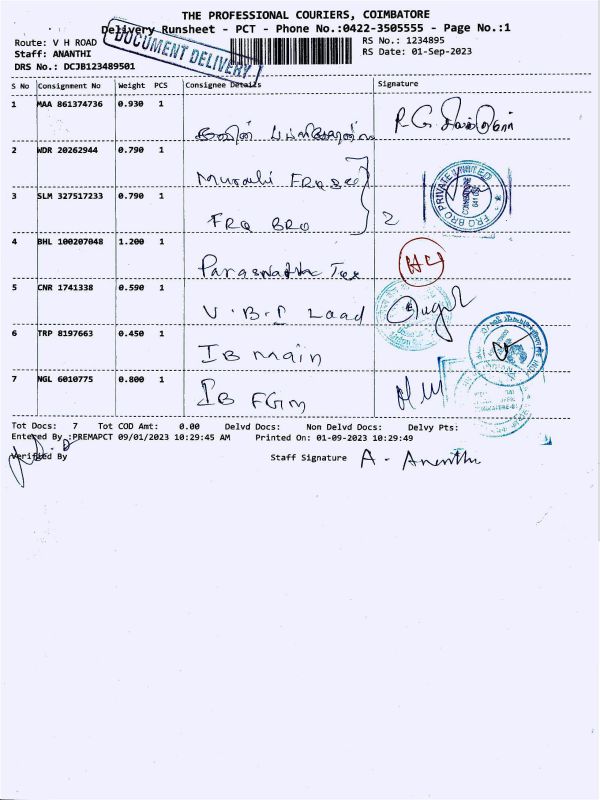 THE PROFESSIONAL COURIERS, COIMBATORE
Delivery Runsheet - PCT - Phone No.:0422-3505555 - Page No.:1
Route: V H ROAD
RS No.: 1234895
Staff: ANANTHI
RS Date: 01-Sep-2023
DRS No.: DCJB123489501
DOCUMENT DELIVERY
S No Consignment No Weight PCS Consignee Details Signature
1 MAA 861374736 0.930 1
2 WDR 20262944 0.790 1
Murali
3 SLM 327517233 0.790 1
FRQ BRO 2
FRO BRO PRIVATE LIMITED
COIMBATORE
4 BHL 100207048 1.200 1
5 CNR 1741338 0.590 1
V.B.P
6 TRP 8197663 0.450 1
IB Main
7 NGL 6010775 0.800 1
IB FGM
Tot Docs: 7 Tot COD Amt: 0.00 Delvd Docs: Non Delvd Docs: Delvy Pts:
Entered By :PREMAPCT 09/01/2023 10:29:45 AM Printed On: 01-09-2023 10:29:49
Verified By Staff Signature A. Ananthi